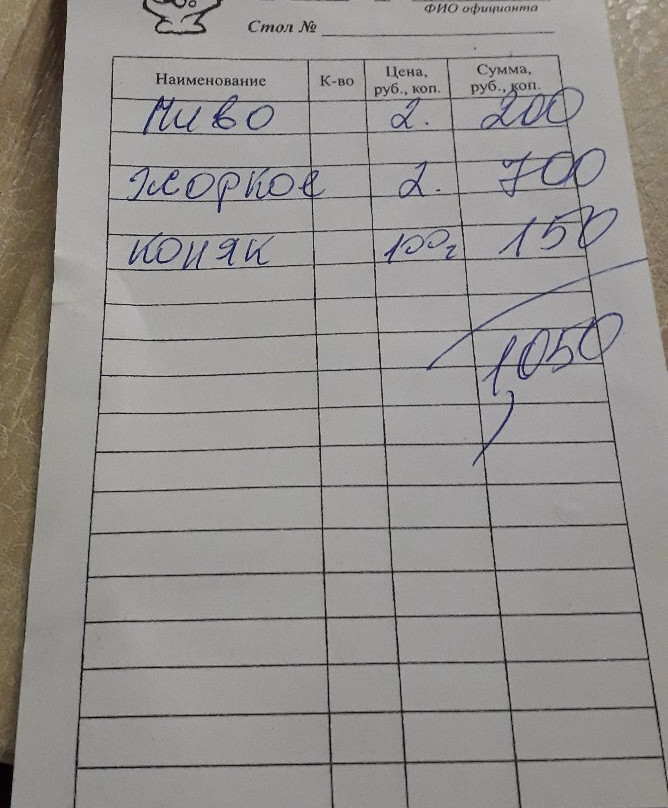 ФИО официанта
Стол №
Наименование К-во Цена, руб., коп. Сумма, руб., коп.
Пиво 2. 200
Жоркое 2. 700
коняк 100г 150
1050